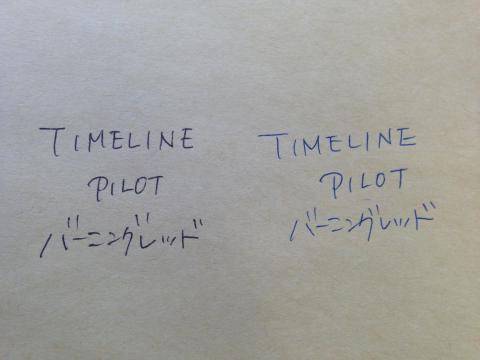 TIMELINE
PILOT
バーニングレッド
TIMELINE
PILOT
バーニングレッド